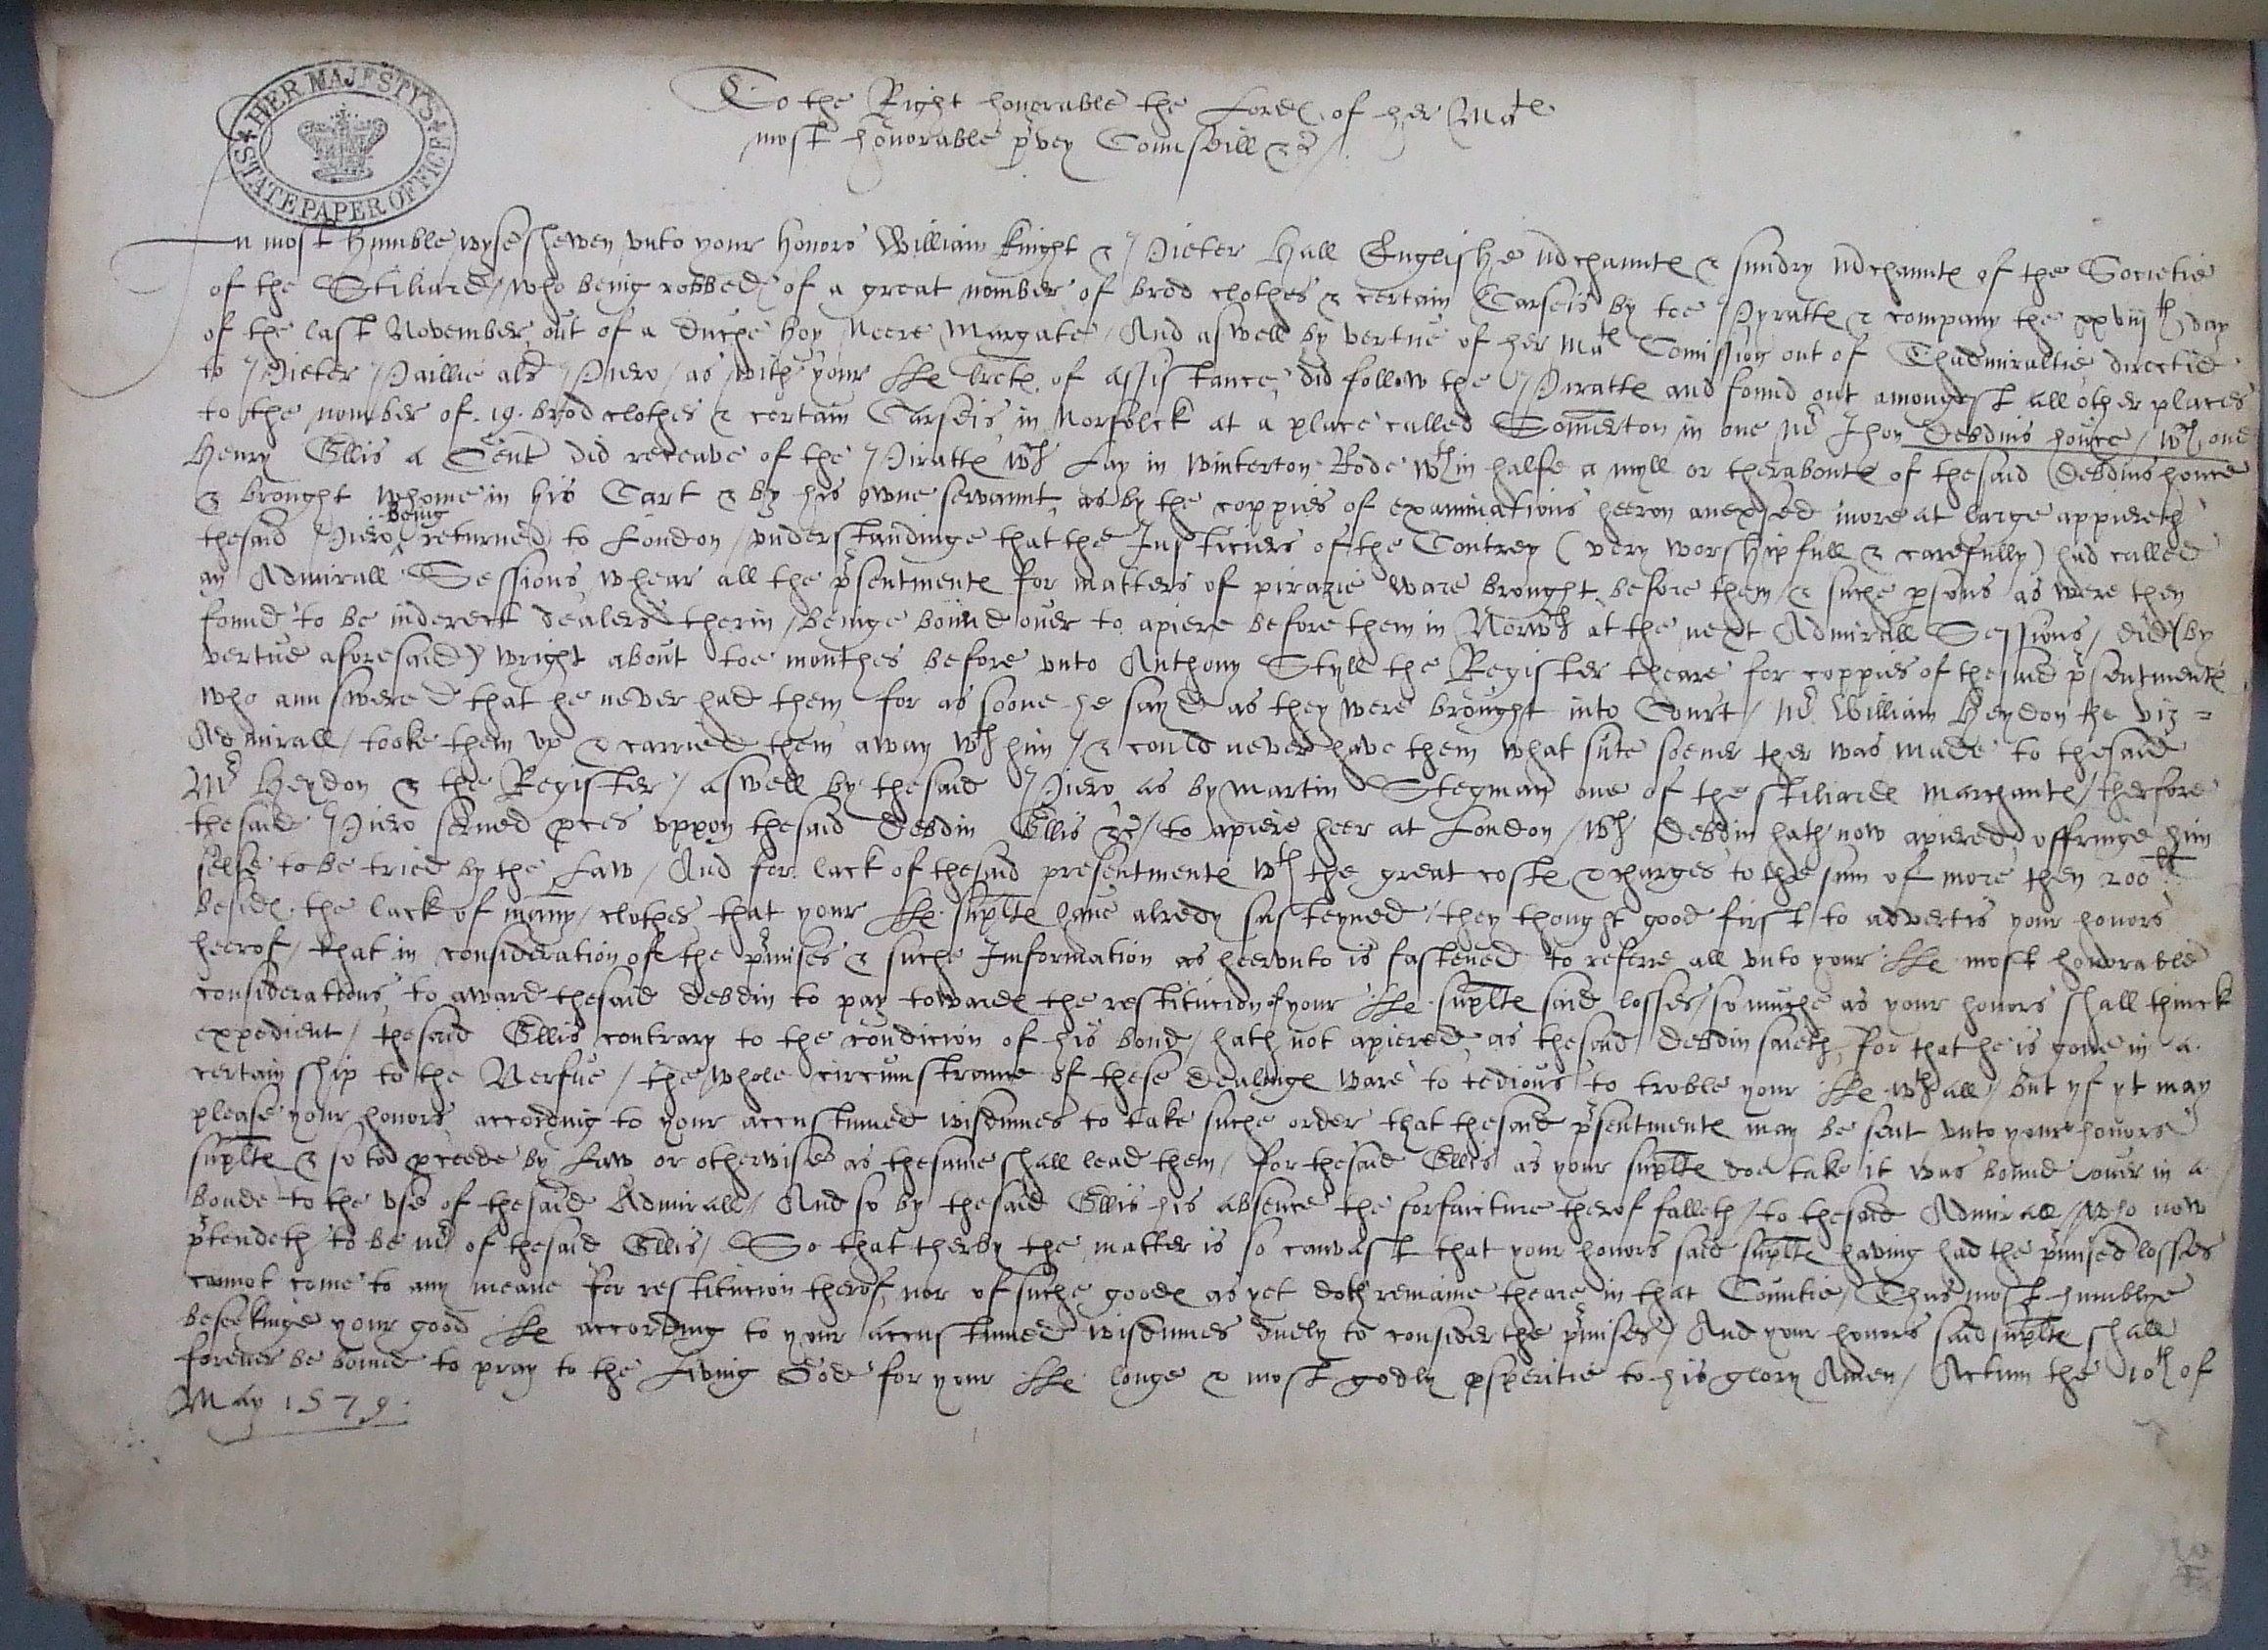 HER MAJESTY'S STATE PAPER OFFICE
To the Right honorable the Lordes of her Mate
most honorable pvey Counsaill &c
In most Humble wyse shewen vnto your Honors William Knight & Pieter Hall Englishe mchauntes & sundry mchauntes of the Societie
of the Stiliard / who being robbed of a great nomber of brod clothes & certain Carseis by toe Pyrattes & company the xxviijth day
of the last November out of a duche hoy Neere Margate / And aswell by vertue of her Mates Comission out of Thadmiraltie directid
to Pieter Paillie als Piero / as with your LLs lrtes of assistance, did follow the Pirattes and found out amongest all other places
to the nomber of .19. brod clothes & certain Carseis in Norfolck at a place called Somerton in one mr Jhon Debdins house / wch one
Henry Ellis a Gent did receave of the Pirattes wch Lay in Winterton Rode wthin halfe a myll or theraboutes of thesaid Debdins house
& brought whome in his Cart & by his owne servaunt, as by the coppies of examinations heeron anexsed more at large appiereth
thesaid Piero being returned to London / vnderstandinge that the Justiciers of the Contrey (very worshipfull & carefully) had called
an Admirall Sessions, whear all the psentmentes for matters of piracie ware brought before them / & suche psons as were then
found to be inderect dealers therin / beinge bound ouer to apiere before them in Norwch at the next Admirall Sessions / did (by
vertue aforesaid) wright about toe monthes before vnto Anthony Styll the Register theare for coppies of thesaid psentmentes
who aunswered that he never had them for as soone he sayd as they were brought into Court / mr William Heydon the viz =
Admirall / tooke them vp & carried them away wth him / & could never have them what sute soever ther was made to thesaid
Mr Heydon & the Register / aswell by thesaid Piero as by Martin Stegman one of the stiliardes Marchantes / therfore
thesaid Piero serued pces vppon thesaid Debdin Ellis &c / to apiere heer at London / wch Debdin hath now apiered offringe him
selfe to be tried by the Law / And for lack of thesaid presentmentes wth the great costes & charges to the sum of more then 200li
besides the lack of many clothes that your LLs suplts have alredy susteyned / they thought good first to advertis your honors
heerof / that in consideration of the pmises & suche Information as heervnto is fastened to referre all vnto your LLs most honorable
considerations to award thesaid Debdin to pay towardes the restitucion of your LLs suplts said losses / so muche as your honors shall thinck
expedient / thesaid Ellis contrary to the condicion of his bond / hath not apiered as thesaid Debdin saieth, for that he is gone in a
certain ship to the / the whole circumstaunce of these dealinges ware to tedious to troble your LLs wthall / but yf yt may
please your honors according to your accustumed wisdumes to take suche order that thesaid psentmentes may be sent vnto your honors
suplts & so to pceede by Law or otherwise as thesame shall lead them / for thesaid Ellis as your suplts doe take it was bound ouer in a
bonde to the vse of thesaid Admirall / And so by thesaid Ellis his absence the forfaicture therof falleth to thesaid Admirall / who now
ptendeth to be mr of thesaid Ellis / So that therby the matter is so canvast that your honors said suplts having had the pmised losses
cannot come to any meane for restitucion therof, nor of suche goodes as yet doth remaine theare in that Countie / Thus most humblye
beseekinge your good LLs according to your accustumed wisdumes duely to consider the pmises / And your honors said suplts shall
foreuer be bound to pray to the Living God for your LLs longe & most godly psperitie to his glory Amen / Actum the 10th of
May 1579.